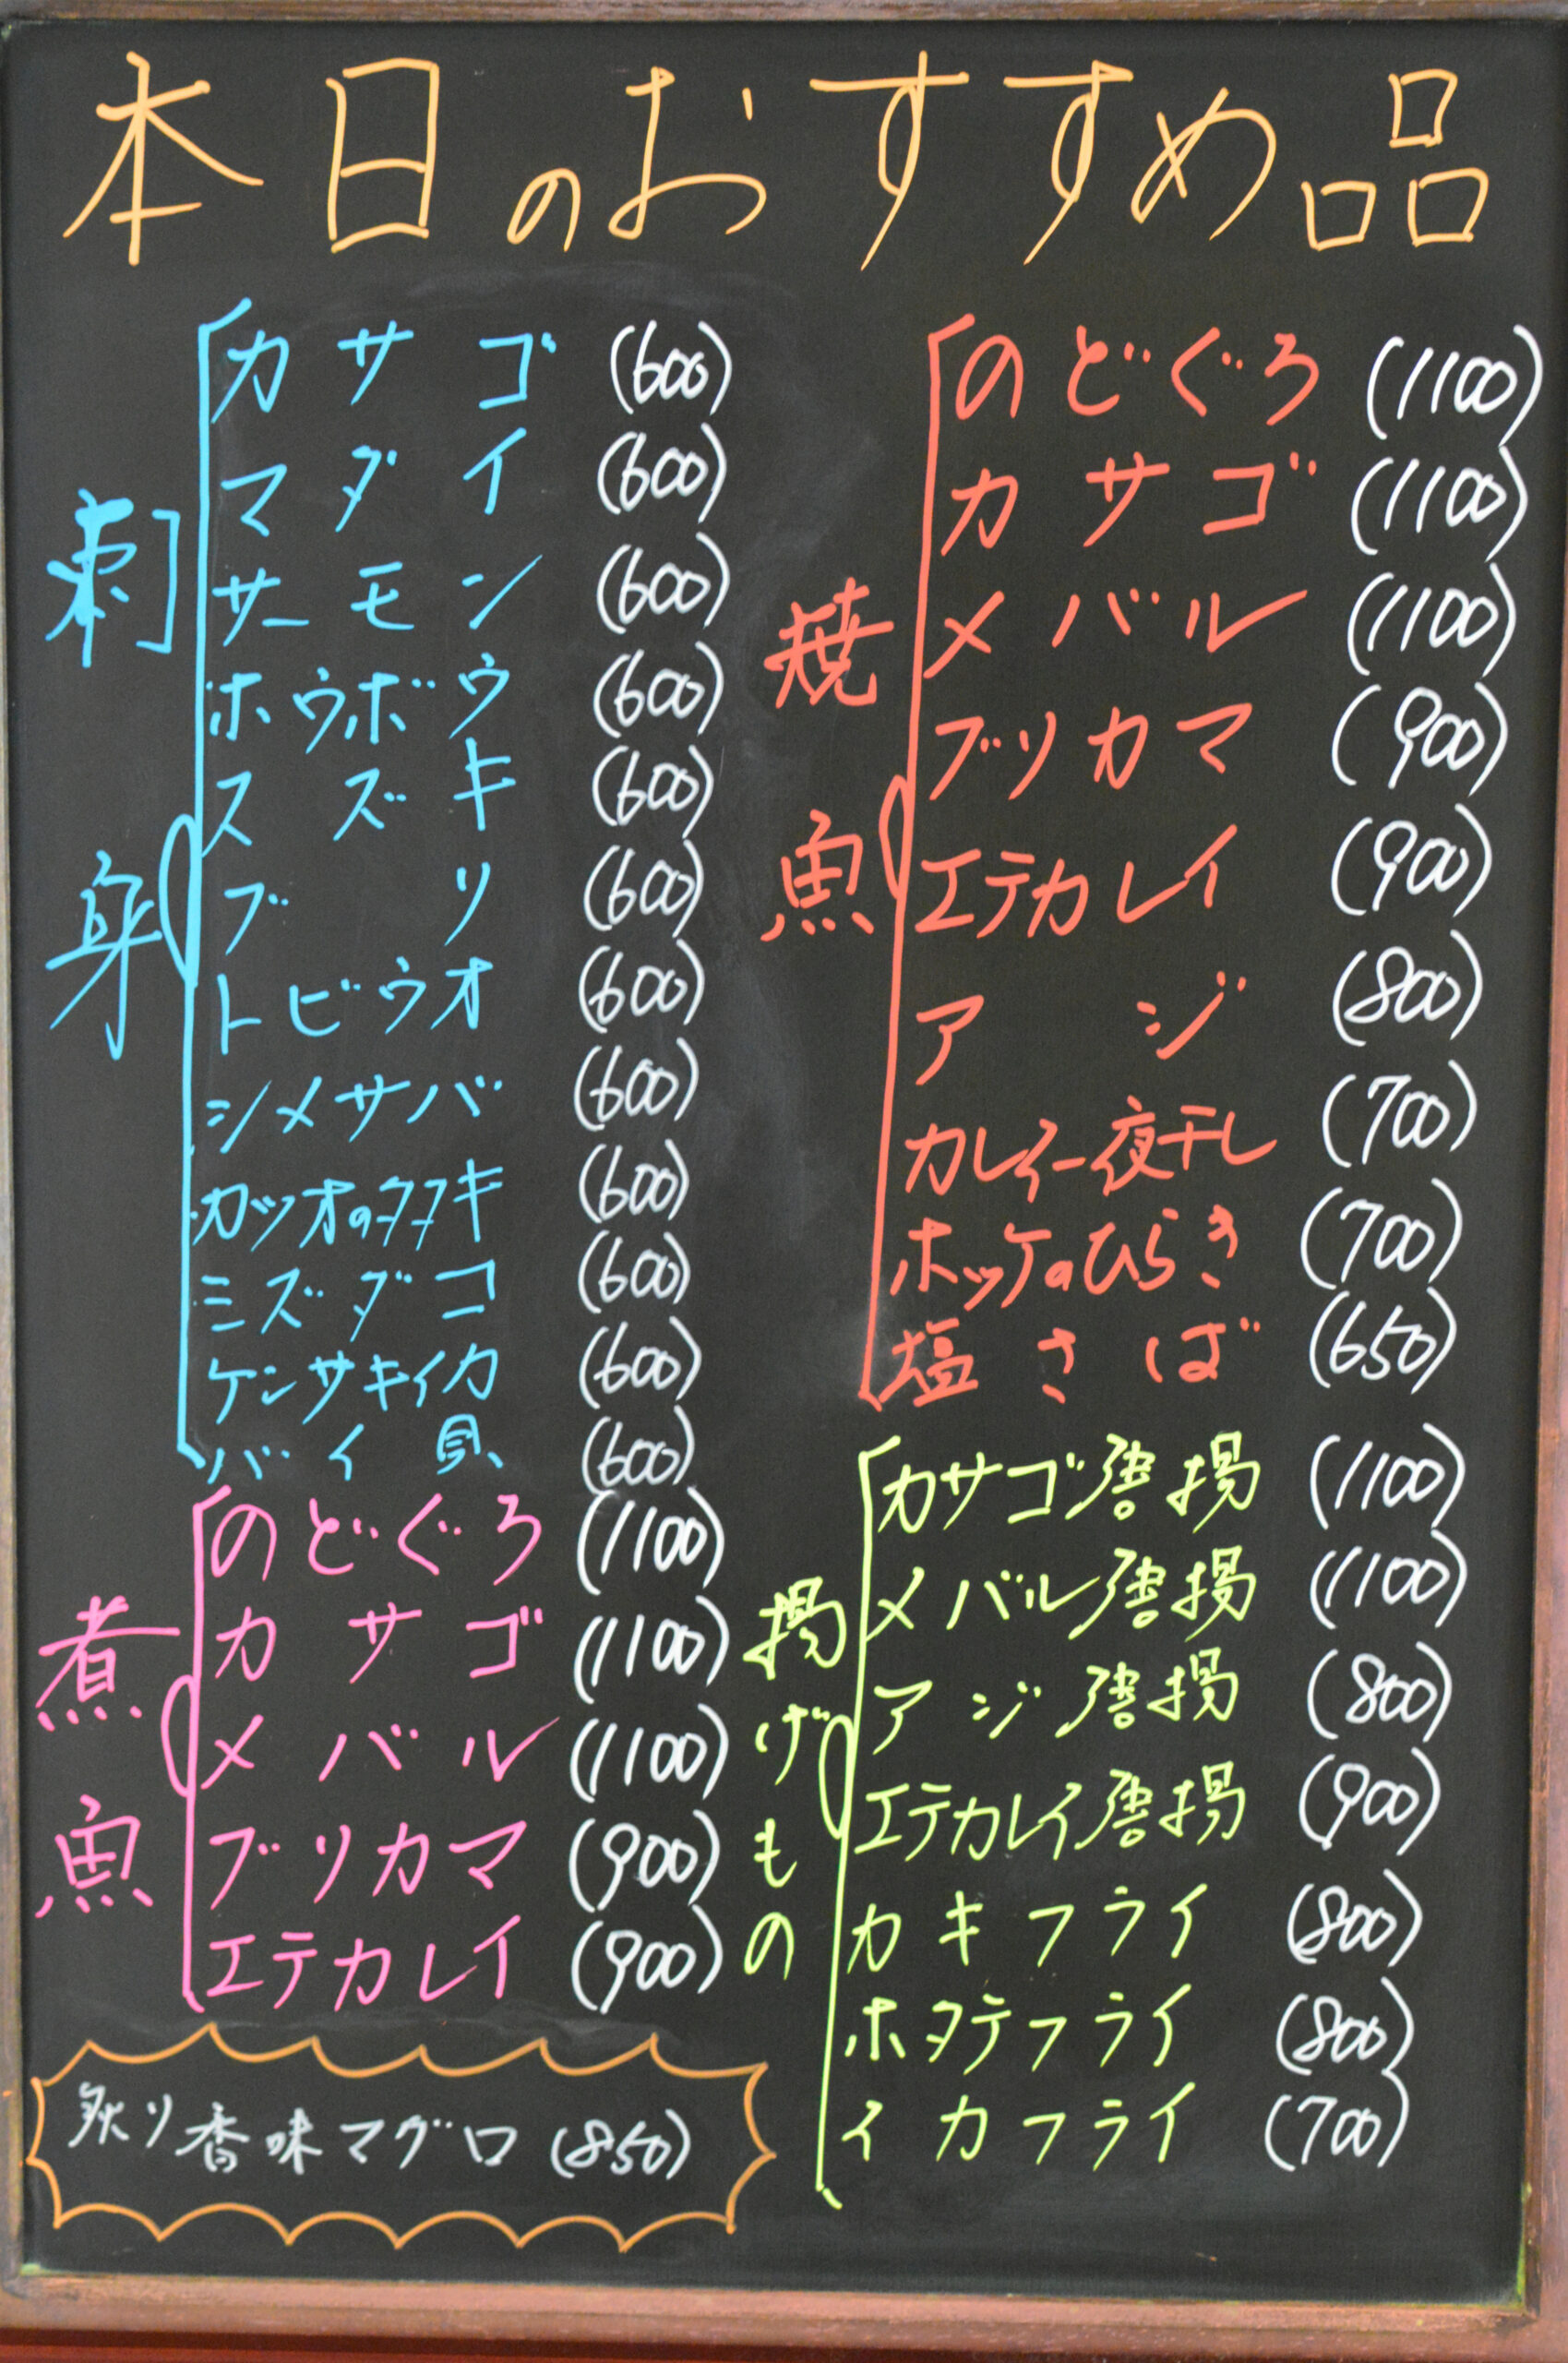 本日のおすすめ品
刺身
カサゴ (600)
マダイ (600)
サーモン (600)
ホウボウ (600)
スズキ (600)
ブリ (600)
トビウオ (600)
シメサバ (600)
カツオのタタキ (600)
ミズダコ (600)
ケンサキイカ (600)
バイ貝 (600)
煮魚
のどぐろ (1100)
カサゴ (1100)
メバル (1100)
ブリカマ (900)
エテカレイ (900)
炙り香味マグロ (850)
焼魚
のどぐろ (1100)
カサゴ (1100)
メバル (1100)
ブリカマ (900)
エテカレイ (900)
アジ (800)
カレイ一夜干し (700)
ホッケのひらき (700)
塩さば (650)
揚げもの
カサゴ唐揚 (1100)
メバル唐揚 (1100)
アジ唐揚 (800)
エテカレイ唐揚 (900)
カキフライ (800)
ホタテフライ (800)
イカフライ (700)